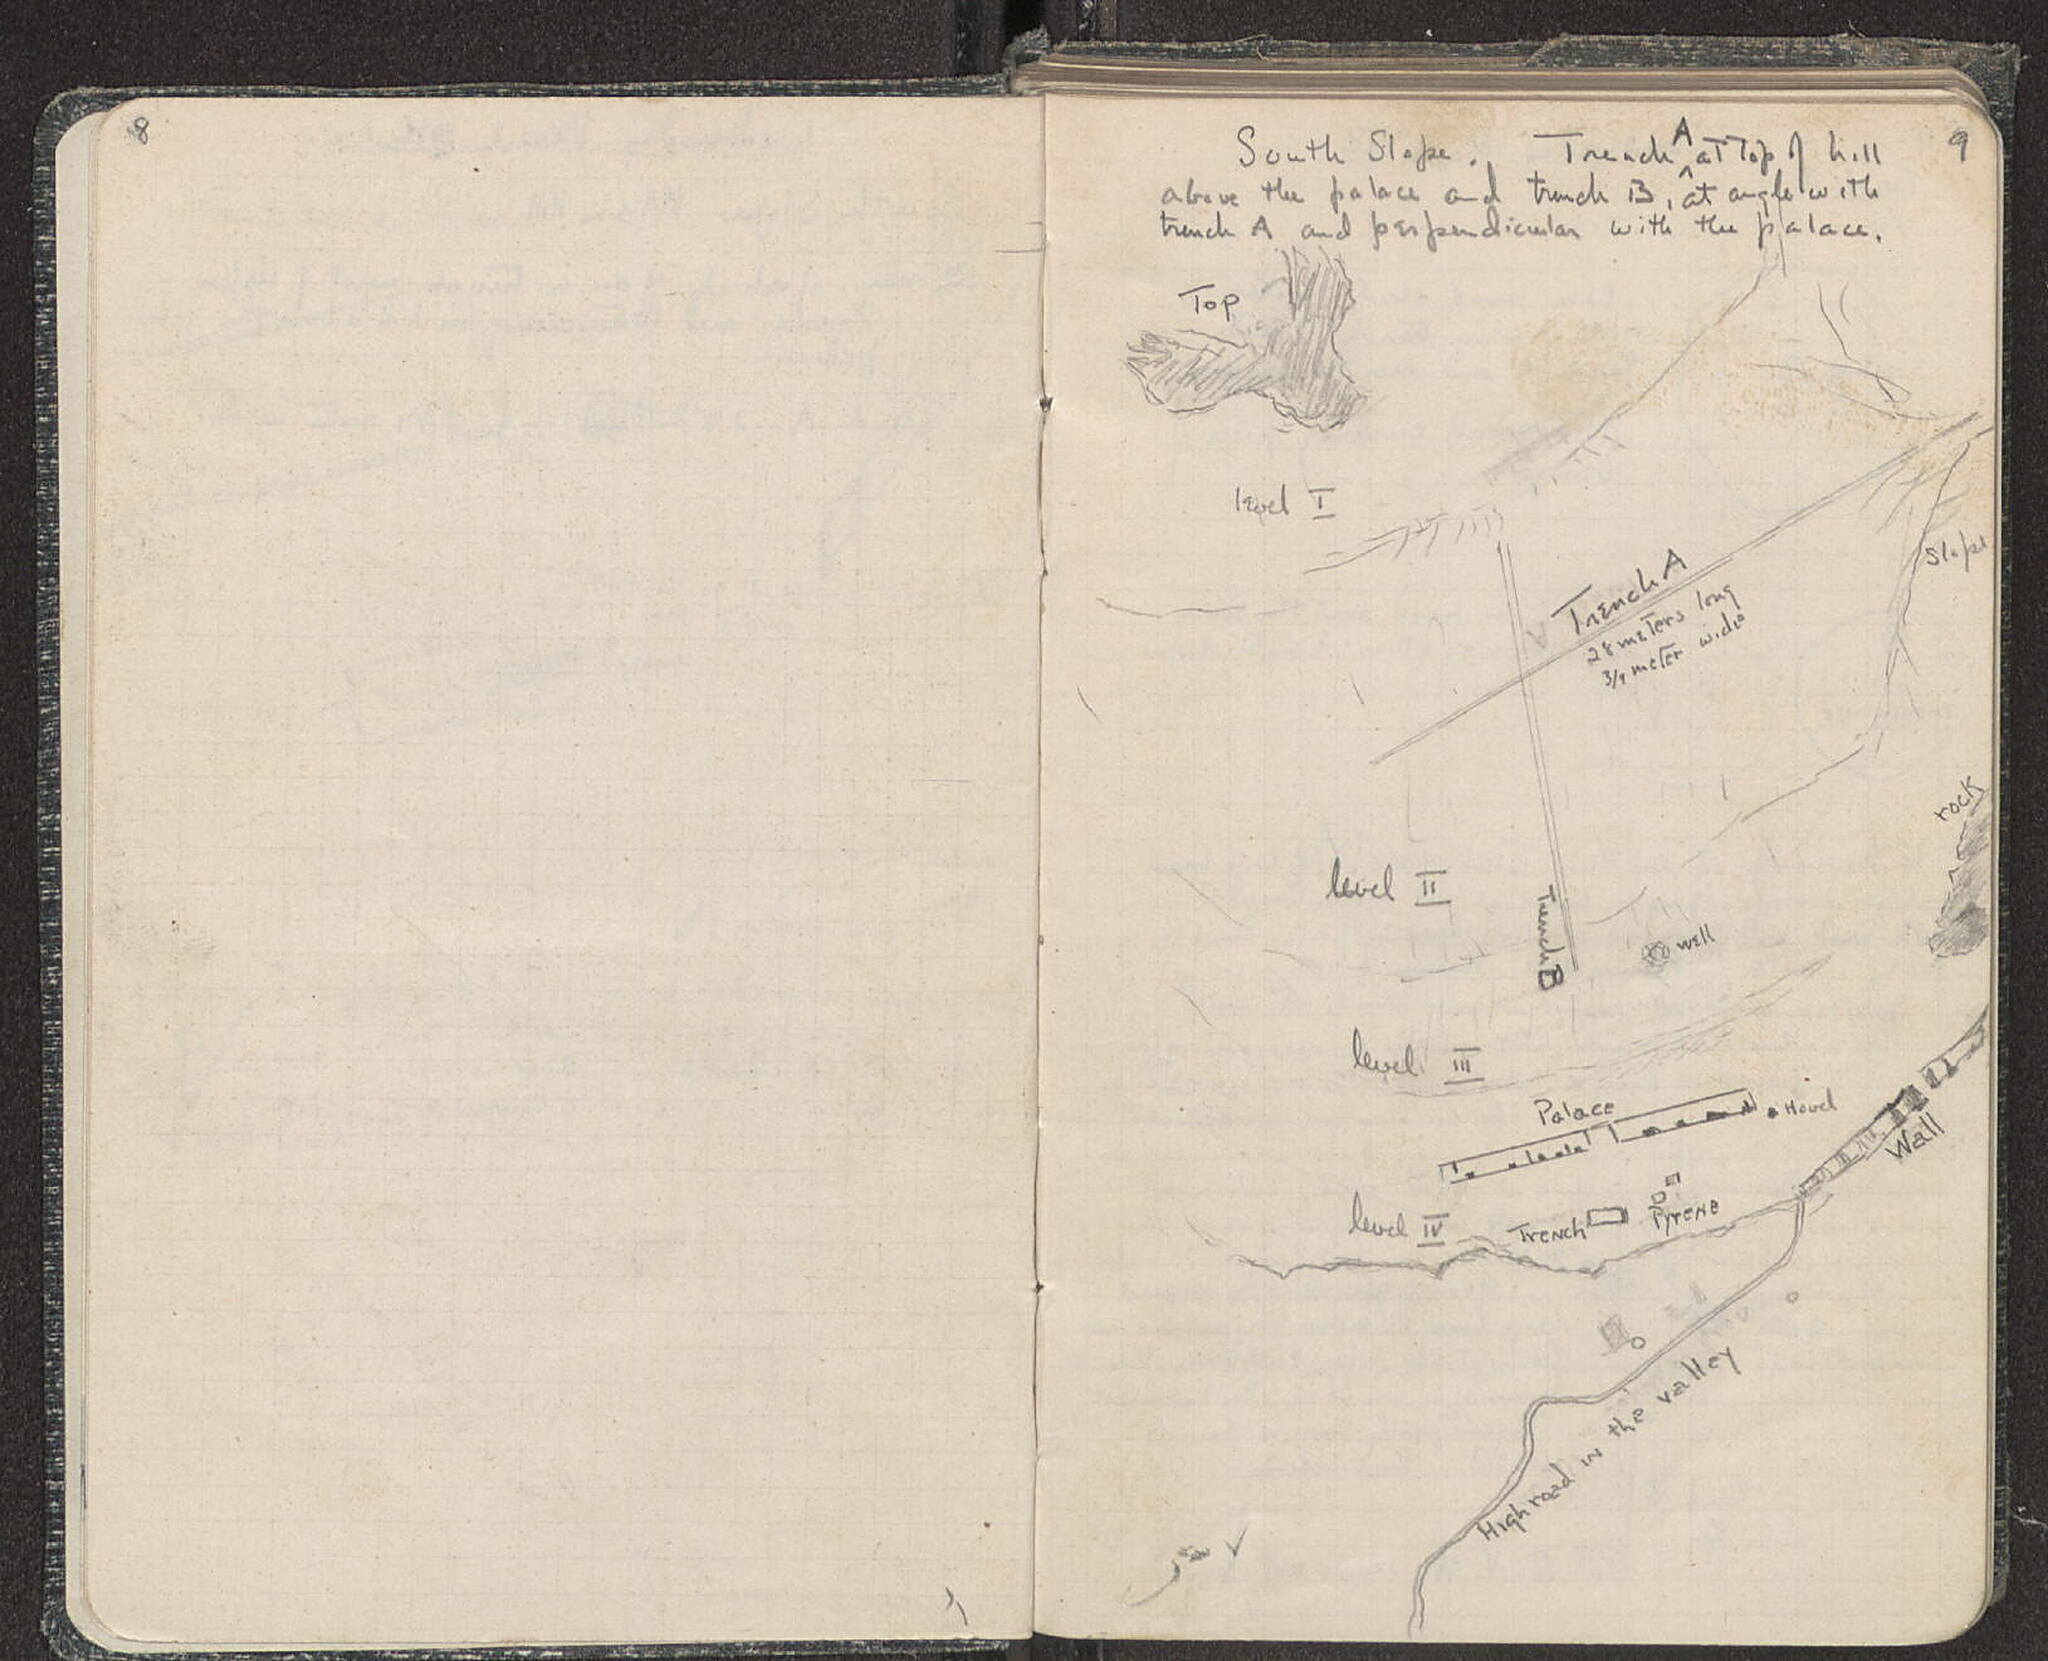 8
9
South Slope. Trench A at Top of hill
above the palace and trench B, at angle with
trench A and perpendicular with the palace.
Top
level I
Trench A
28 meters long
3/4 meter wide
Slope
rock
level II
Trench B
well
level III
Palace
Hovel
Wall
level IV
Trench
Pyrene
High road in the valley